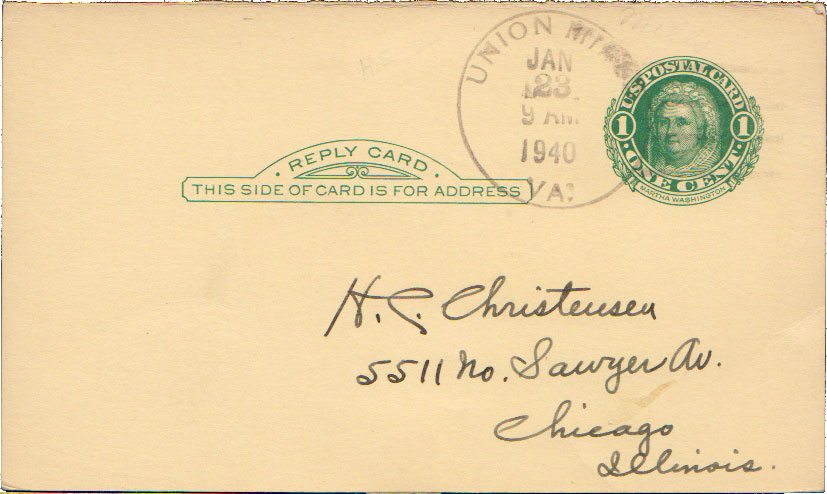 UNION
JAN
23
9 AM
1940
VA.
U.S. POSTAL CARD
1 1
ONE CENT
MARTHA WASHINGTON
REPLY CARD
THIS SIDE OF CARD IS FOR ADDRESS
H. C. Christensen
5511 No. Sawyer Av.
Chicago
Illinois.